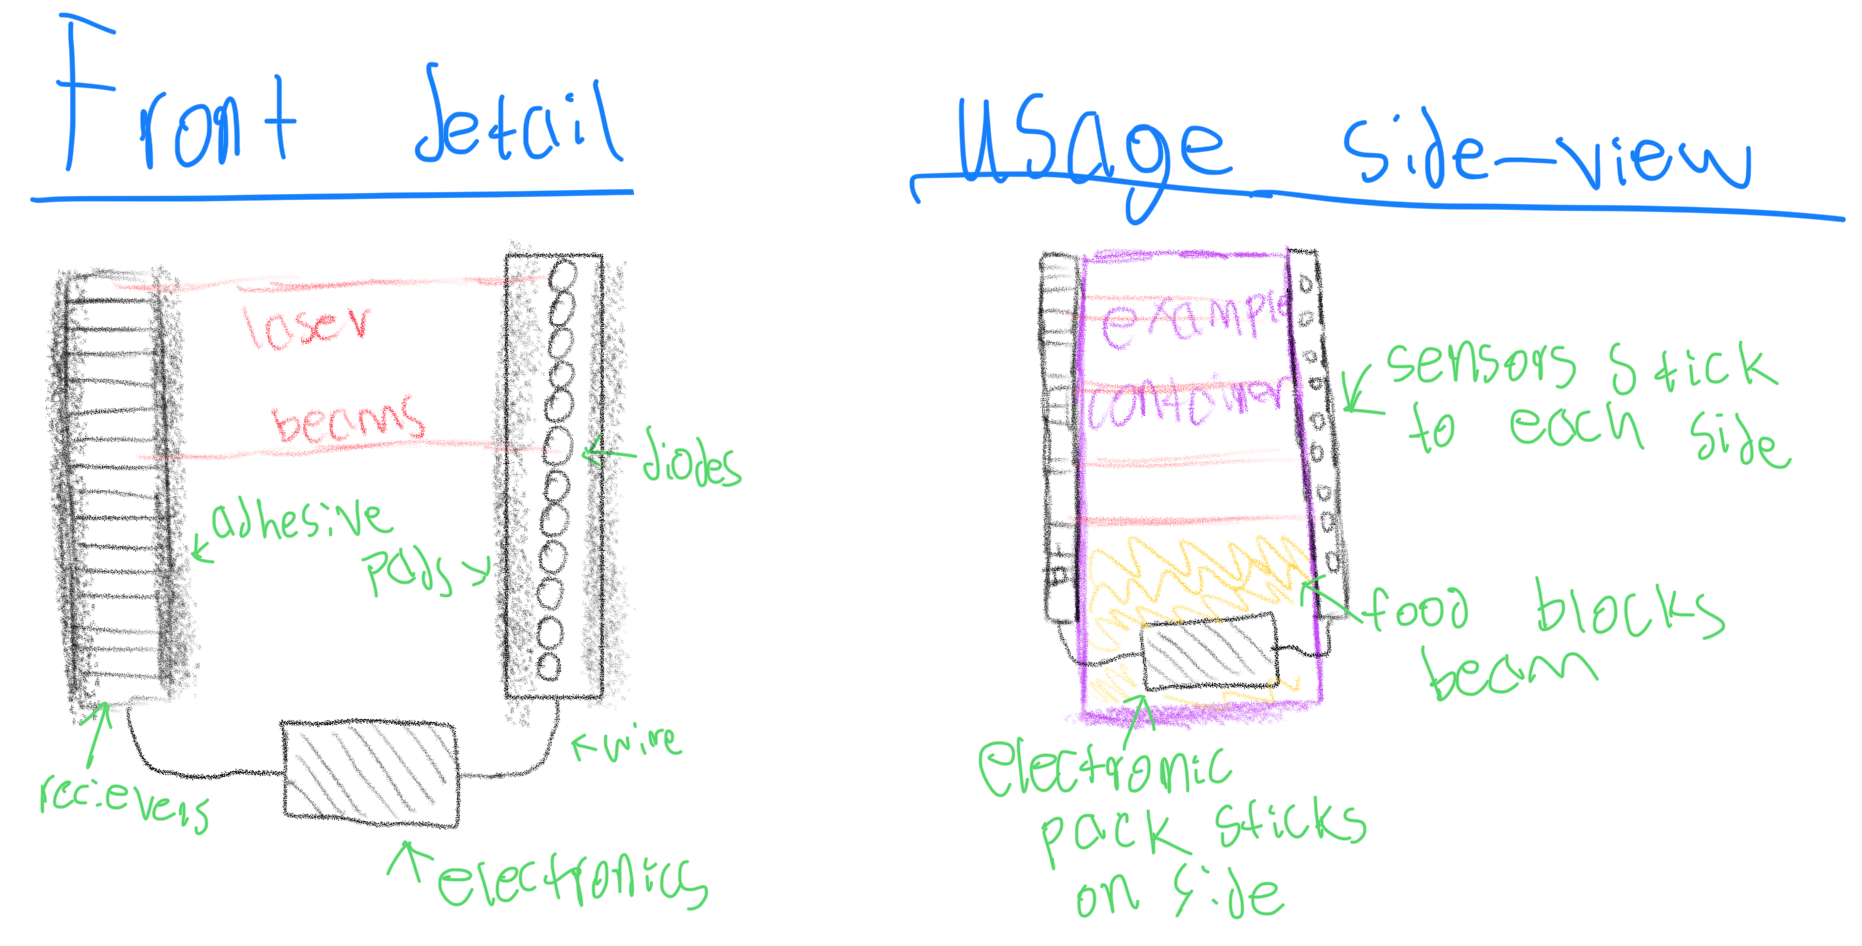 Front detail
laser
beams
diodes
adhesive
pads
wire
recievers
electronics
usage side-view
example
container
sensors stick
to each side
food blocks
beam
electronic
pack sticks
on side